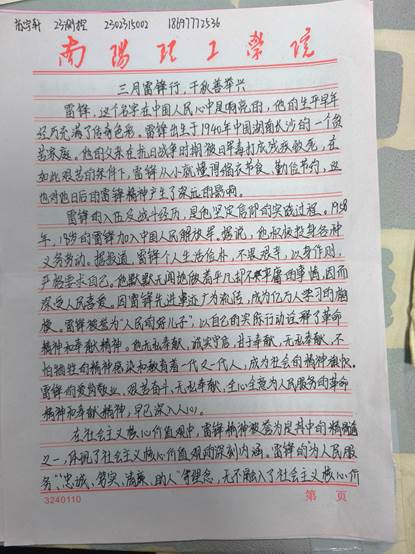 23测控 2302315002 18697772536
南陽理工學院
三月雷锋行,千秋善举兴
雷锋,这个名字在中国人民心中是响亮的,他的生平早年
经历充满了传奇色彩。雷锋出生于1940年中国湖南长沙的一个贫
苦家庭。他的父亲在抗日战争时期被日军毒打成残疾致死,在
如此艰苦的条件下,雷锋从小就懂得缩衣节食、勤俭节约,这
也对他日后的雷锋精神产生了深远的影响。
雷锋的入伍及战斗经历,是他坚定信仰的实践过程。1958
年,18岁的雷锋加入中国人民解放军。据说,他积极投身各种
义务劳动。据报道,雷锋个人生活俭朴,不畏艰辛,以身作则,
严格要求自己。他默默无闻地做着平凡却不平庸的事情,因而
深受人民喜爱。因雷锋先进事迹广为流传,成为亿万人学习的楷
模。雷锋被誉为“人民的好儿子”,以自己的实际行动诠释了革命
精神和奉献精神。他无私奉献、诚实守信、甘于奉献、无私奉献、不
怕牺牲的精神感染和教育着一代又一代人,成为社会的精神旗帜。
雷锋的爱岗敬业、艰苦奋斗、无私奉献、全心全意为人民服务的革命
精神和奉献精神,早已深入人心。
在社会主义核心价值观中,雷锋精神被誉为是其中的楷模
之一,体现了社会主义核心价值观的深刻内涵。雷锋的“为人民服
务”、“忠诚、笃实、清廉、助人”等理念,无不融入了社会主义核心价
3240110 第 页